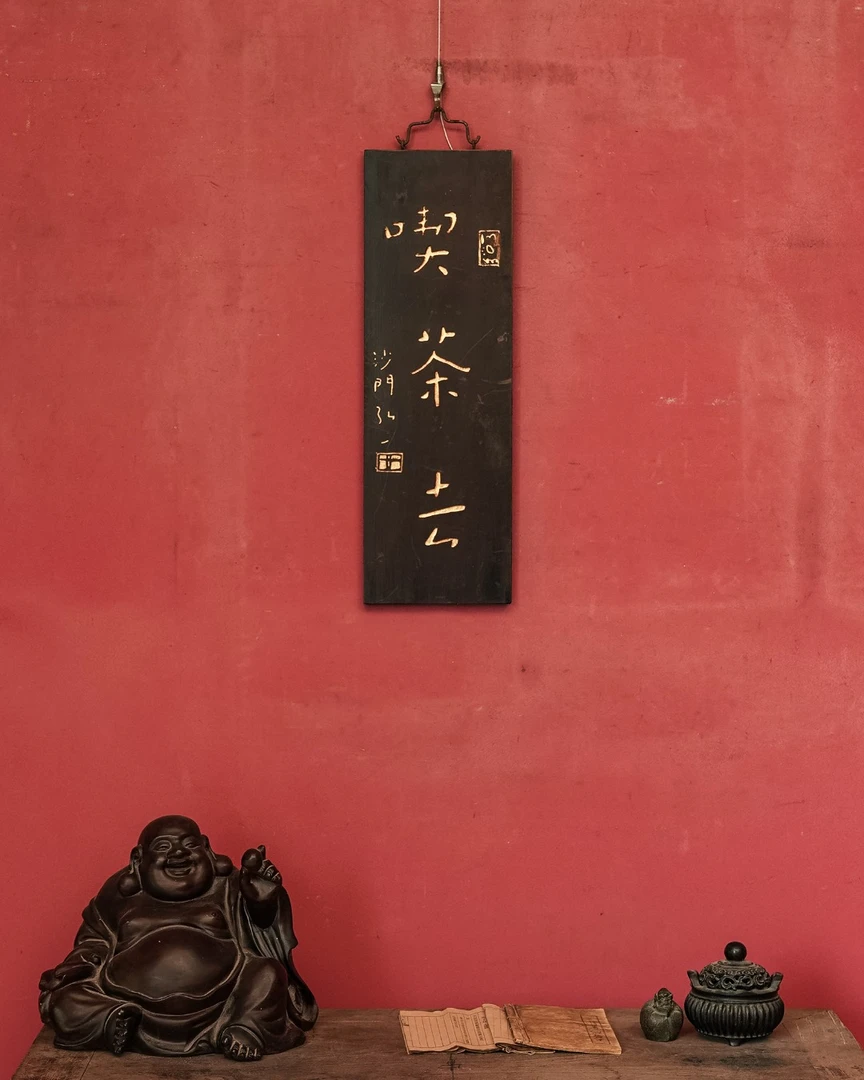 喫茶去
沙門弘一